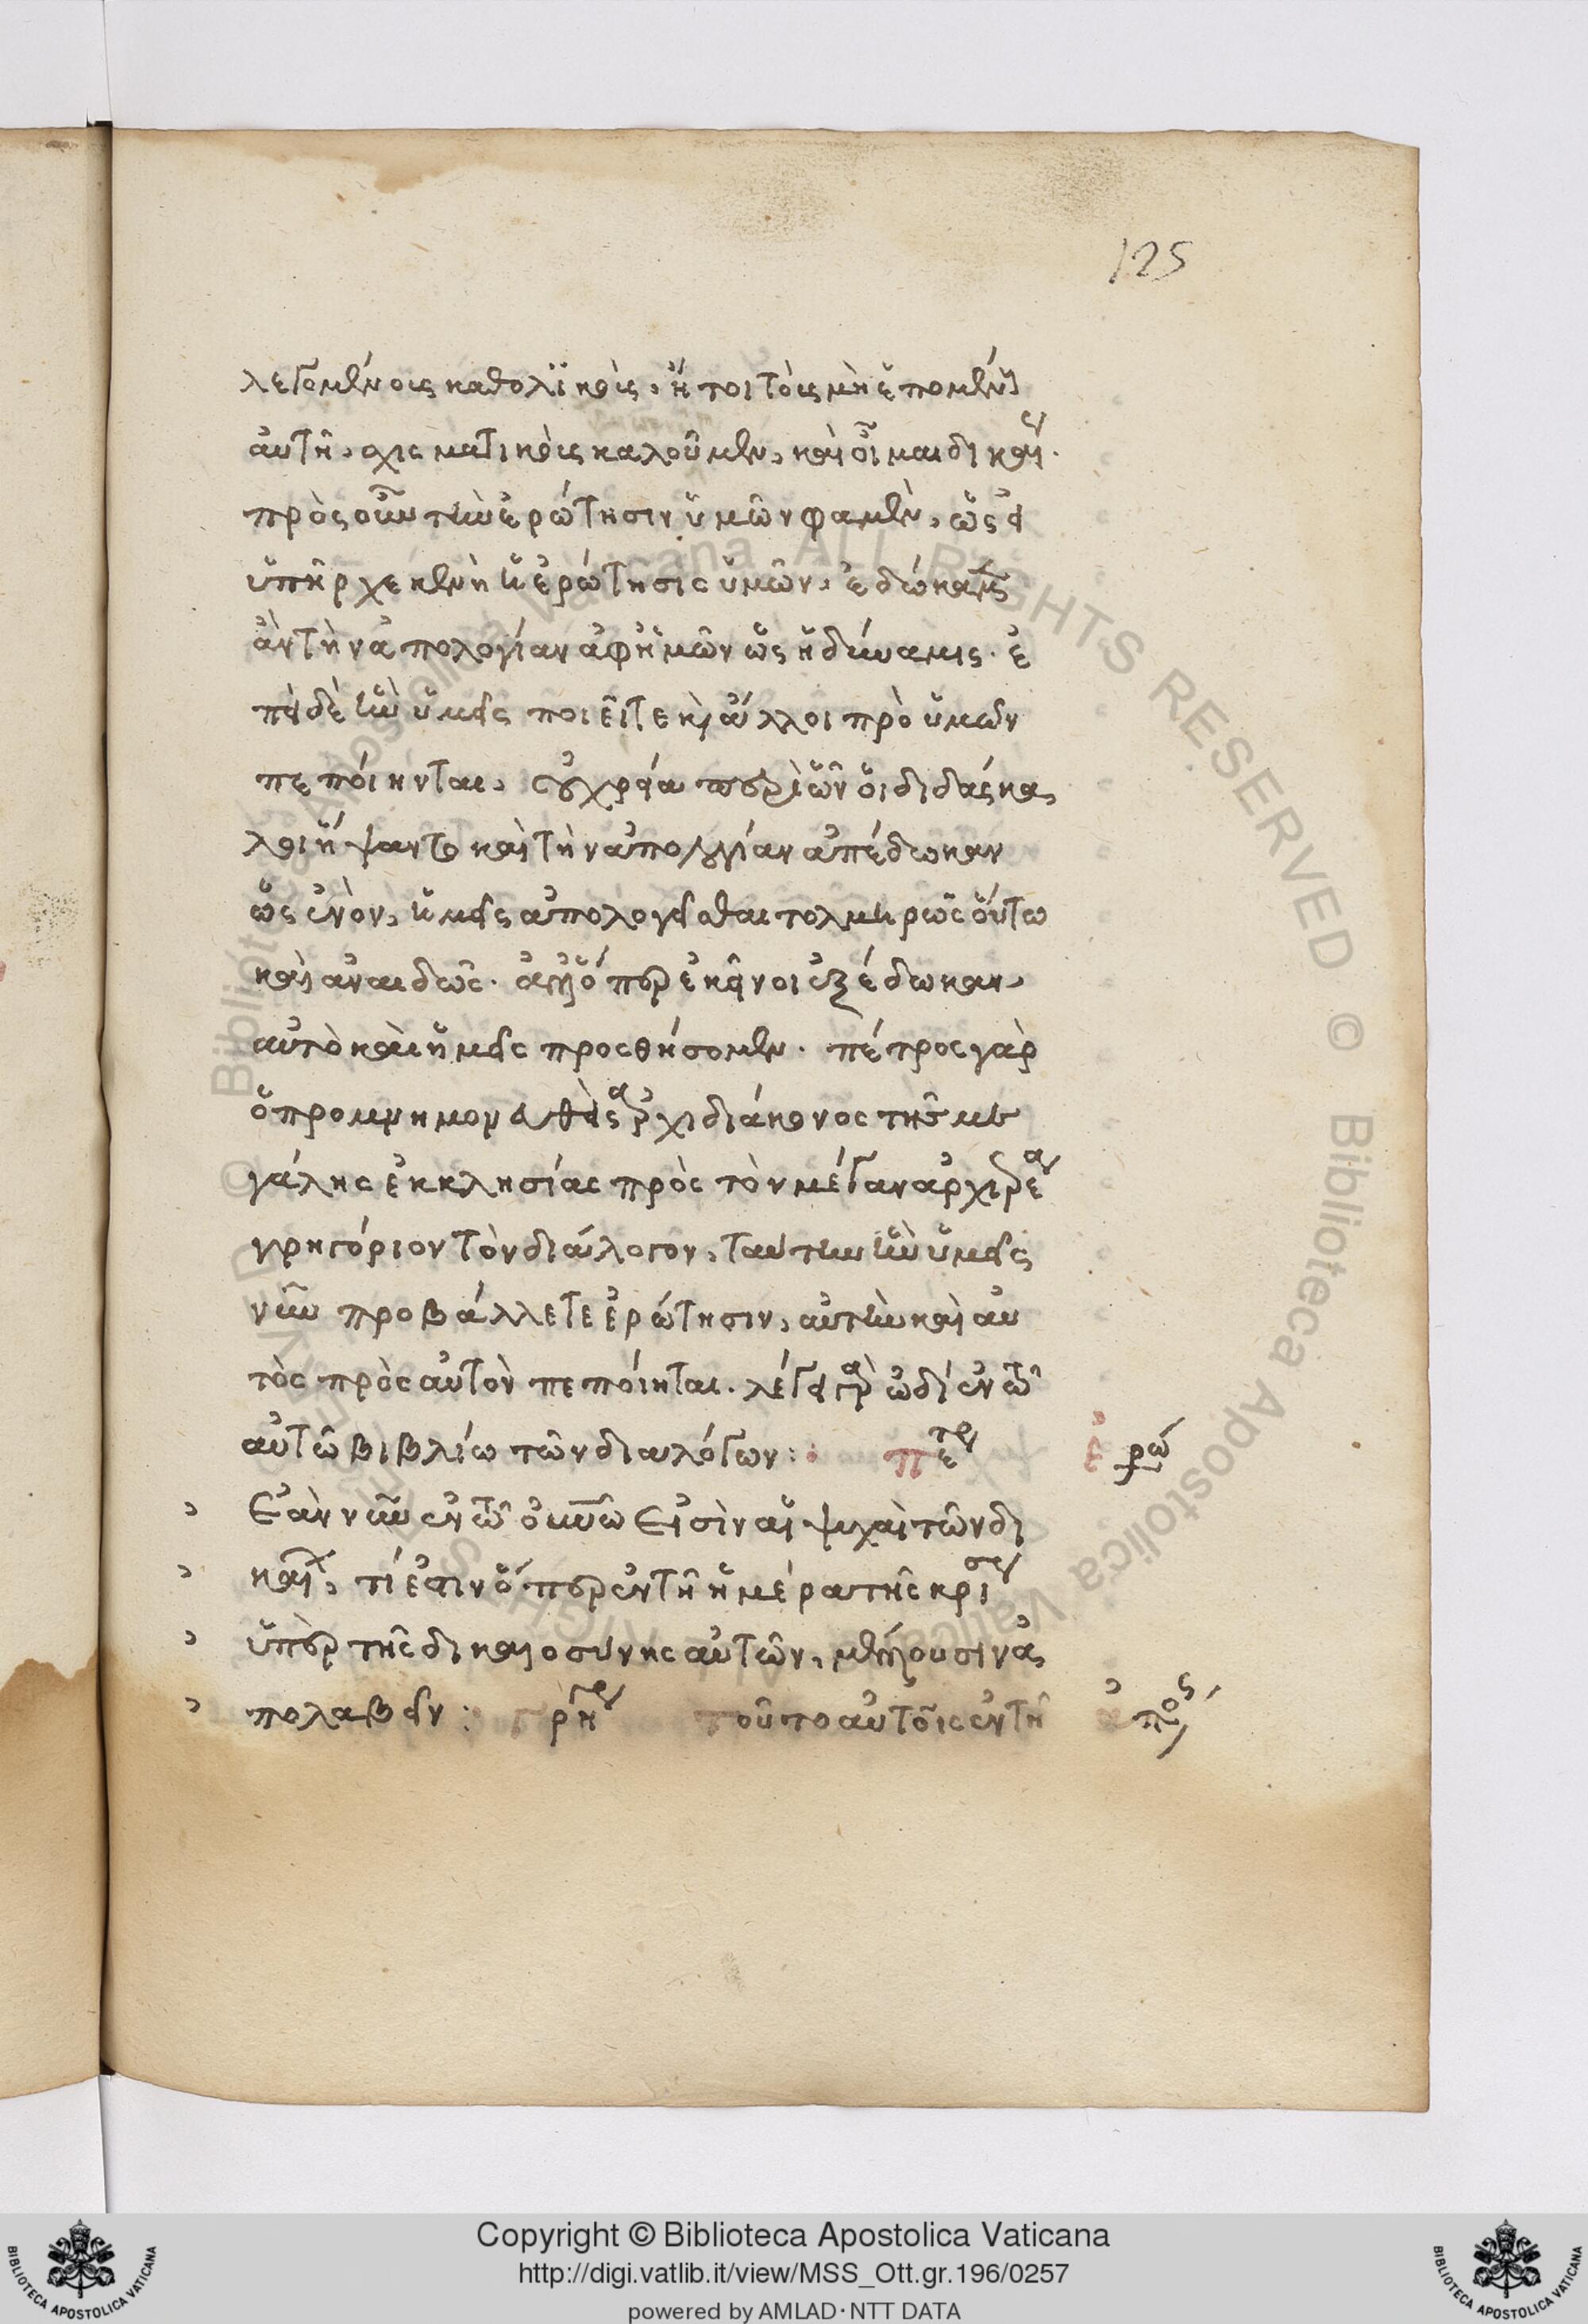 125
λεγομένοις καθολϊκοῖς, ἤτοι τοῖς μὴ ἑπομένοις
αὐτῆ, σχισματικοῖς καλοῦμεν, καὶ οἶμαι δικαί.
πρὸς οὖν τὴν ἐρώτησιν ὑμῶν φαμὲν, ὡς εἰ
ὑπῆρχε κενὴ ἡ ἐρώτησις ὑμῶν, ἐδώκαμεν
ἂν τὴν ἀπολογίαν ἀφ' ἡμῶν ὡς ἡ δύναμις. ἐ
πεὶ δὲ ἣν ὑμεῖς ποιεῖτε κ̀ ἄλλοι πρὸ ὑμῶν
πεποίηνται, οὐ χρεία περὶ ὧν οἱ διδάσκα,
λοι ἥψαντο καὶ τὴν ἀπολογίαν ἀπέδωκαν
ὡς ἐνὸν, ἡμεῖς ἀπολογεῖσθαι τολμηρῶς οὕτω
καὶ ἀναιδῶς. ἀλλ' ὅπερ ἐκεῖνοι ἐξέδωκαν,
αὐτὸ καὶ ἡμεῖς προσθήσομεν. πέτρος γὰρ
ὁ προμνημονευθεὶς ἀρχιδιάκονος τῆς με
γάλης ἐκκλησίας πρὸς τὸν μέγαν ἀρχιερέα
γρηγόριον τὸν διάλογον, ταύτην ἣν ὑμεῖς
νῦν προβάλλετε ἐρώτησιν, αὐτὴν καὶ αὐ
τὸς πρὸς αὐτὸν πεποίηται. λέγει γὰρ ὡδί ἐν τῶ
αὐτῶ βιβλίω τῶν διαλόγων: πέτρ ἐρώ
Ἐὰν νῦν ἐν τῶ οὐνῶ εἰσὶν αἱ ψυχαὶ τῶν δι
καί, τί ἐστιν ὅπερ ἐν τῆ ἡμέρα τῆς κρίσε
ὑπὲρ τῆς δικαιοσύνης αὐτῶν, μέλλουσιν ἀ,
πολαβεῖν: γρη τοῦτο αὐτοῖς ἐν τῆ ἀπος
© Biblioteca Apostolica Vaticana ALL RIGHTS RESERVED © Biblioteca Apostolica Vaticana
Copyright © Biblioteca Apostolica Vaticana
http://digi.vatlib.it/view/MSS_Ott.gr.196/0257
powered by AMLAD·NTT DATA
BIBLIOTECA APOSTOLICA VATICANA
BIBLIOTECA APOSTOLICA VATICANA